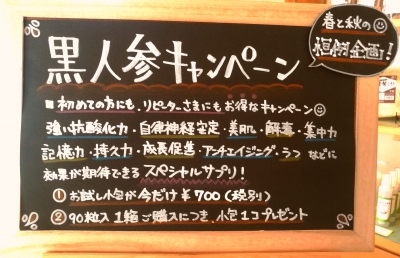 春と秋の
恒例企画!
黒人参キャンペーン
■初めての方にも、リピーターさまにもお得なキャンペーン
強い抗酸化力・自律神経安定・美肌・解毒・集中力
記憶力・持久力・成長促進・アンチエイジング・うつ などに
効果が期待できる スペシャルサプリ!
① お試し小包が今だけ ¥700(税別)
② 90粒入 1箱ご購入につき、小包1コプレゼント